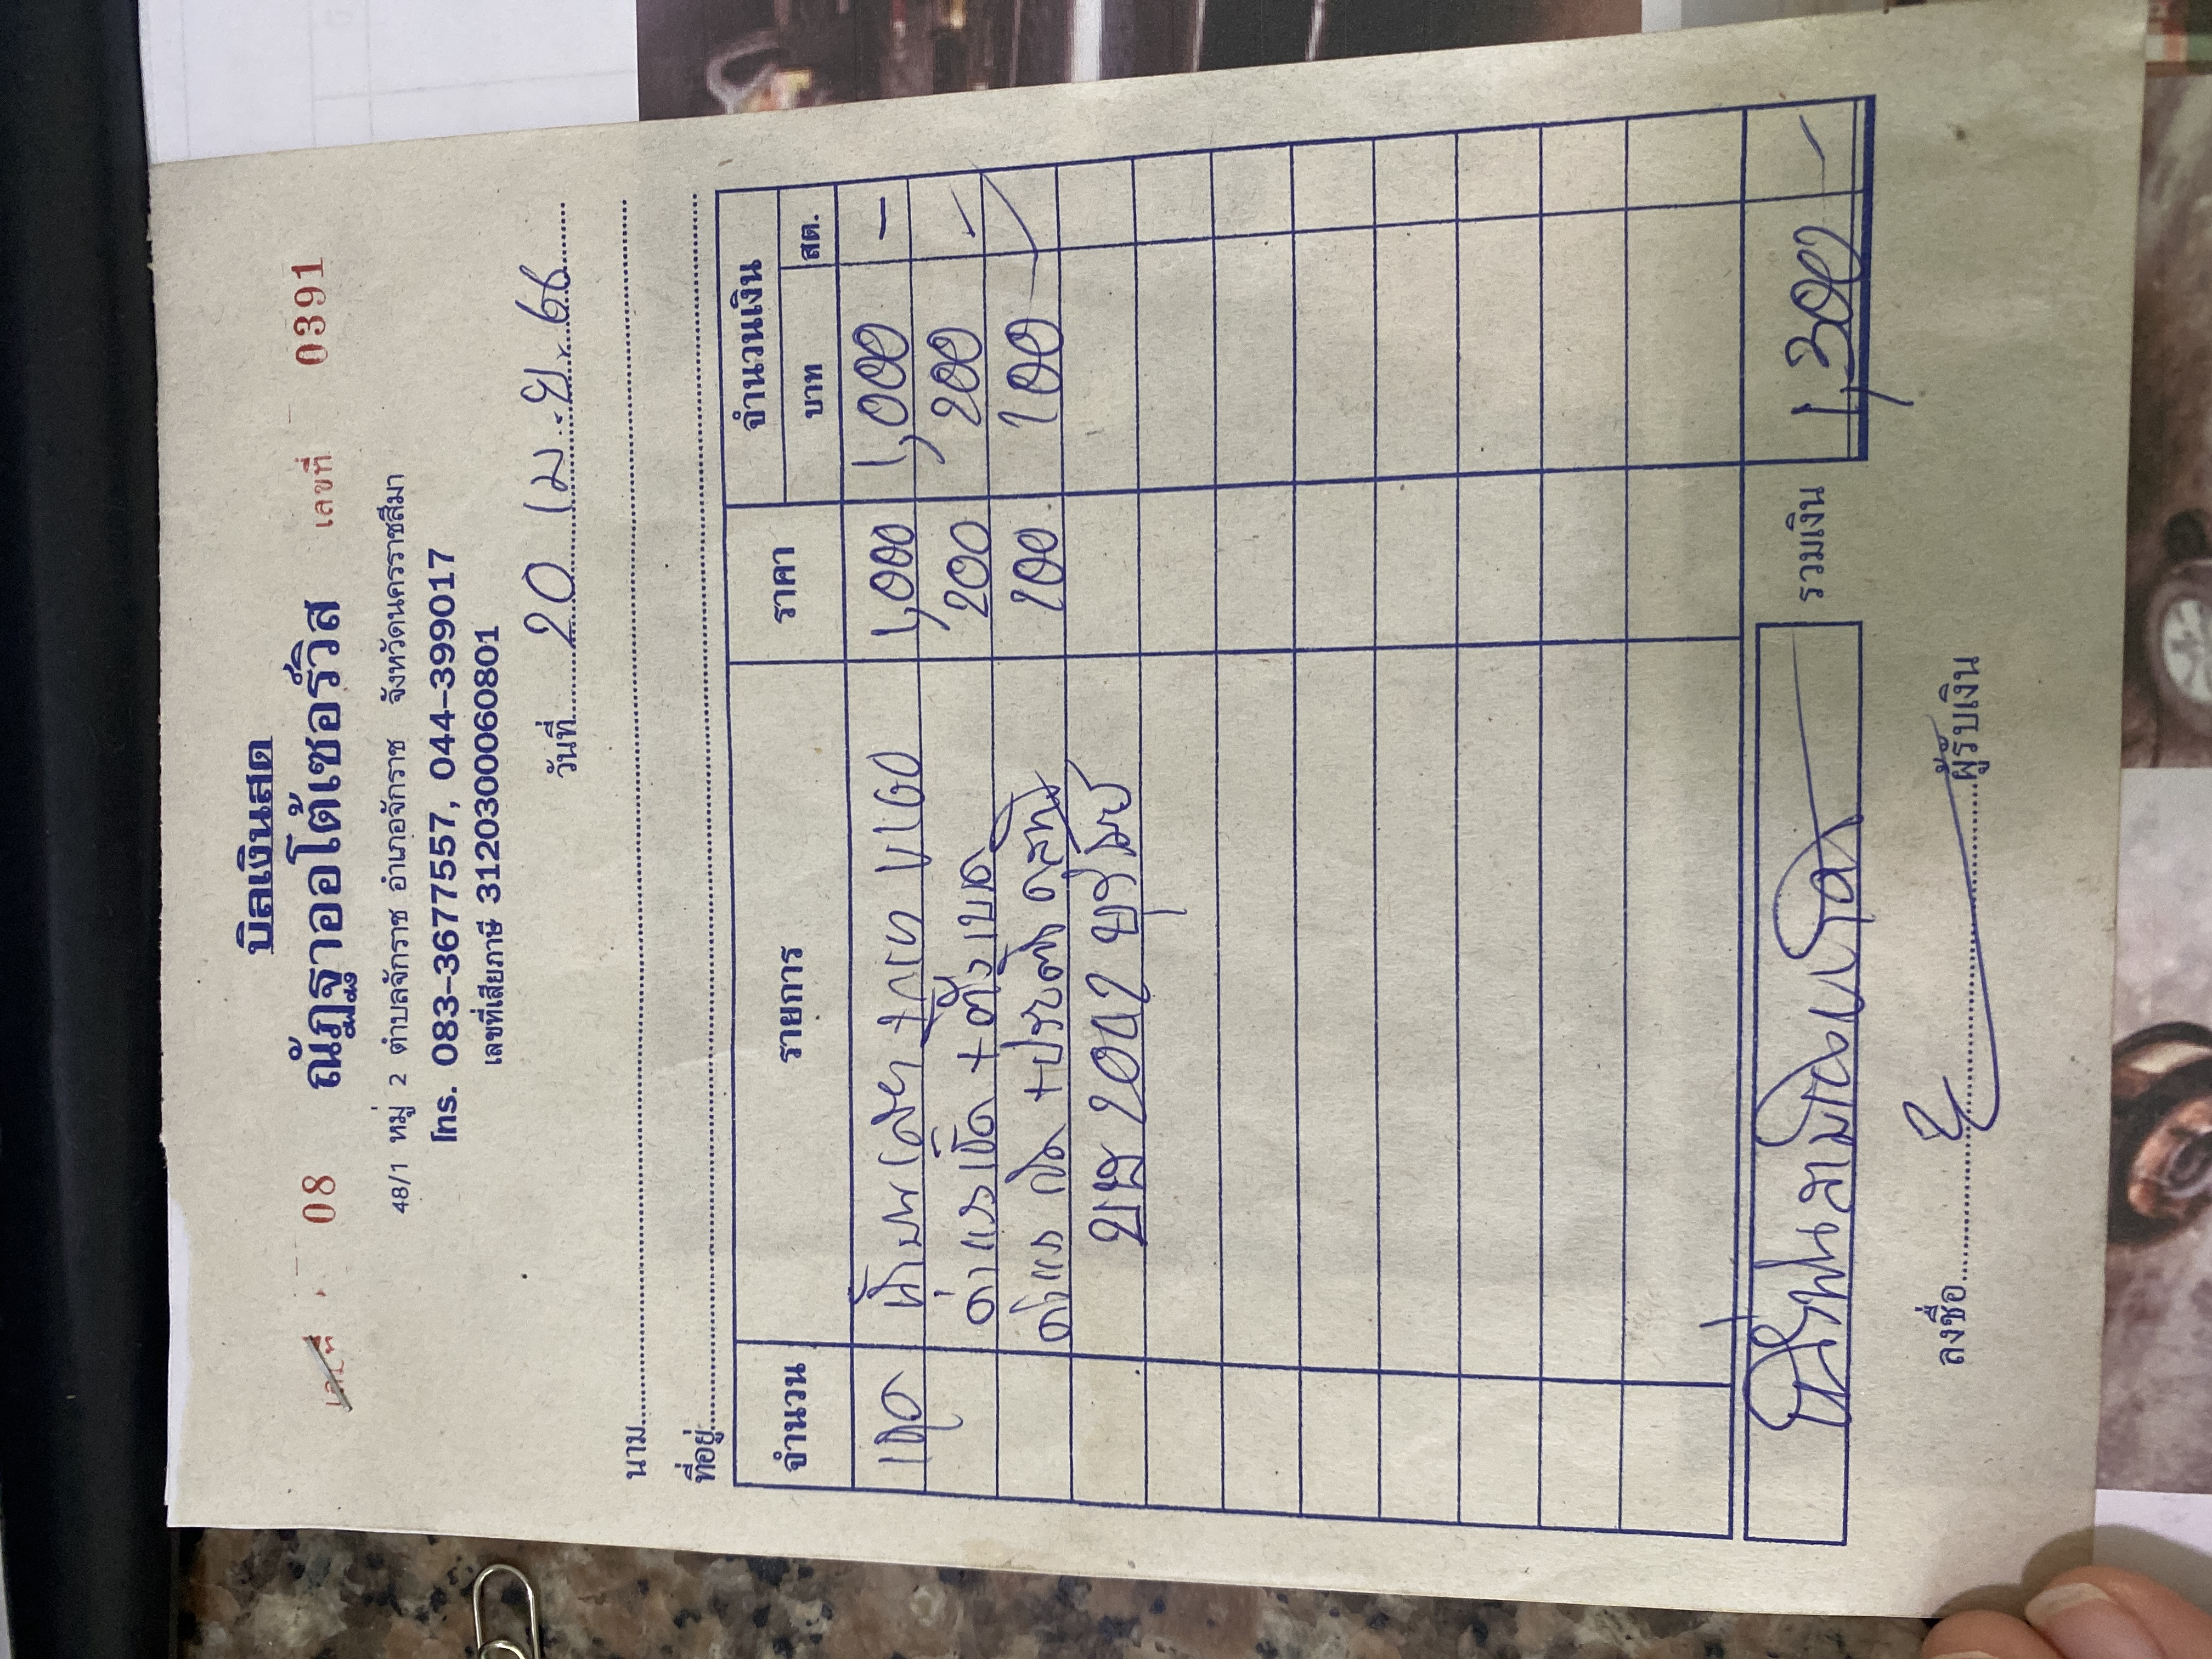 บิลเงินสด
เล่มที่ 08 ณัฏฐาออโต้เซอร์วิส เลขที่ 0391
48/1 หมู่ 2 ตำบลจักราช อำเภอจักราช จังหวัดนครราชสีมา
โทร. 083-3677557, 044-399017
เลขที่เสียภาษี 3120300060801
วันที่ 20 เม.ย. 66
นาม
ที่อยู่
จำนวน รายการ ราคา จำนวนเงิน
บาท สต.
1 ชุด 1,000 1,000 -
ค่าแรง + ตั้ง 200 200 -
ค่าแรง + ปรับตั้ง 100 100 -
บษ 2012 บุรีรัมย์
หนึ่งพันสามร้อยบาทถ้วน รวมเงิน 1,300 -
ลงชื่อ ผู้รับเงิน